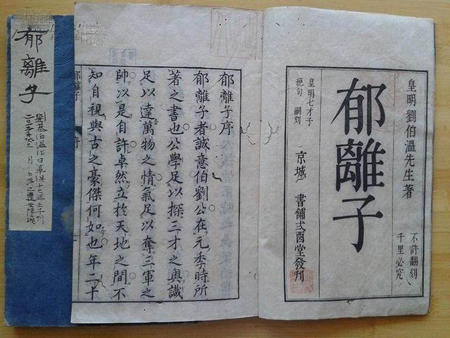 皇明劉伯溫先生著
郁離子
不許翻刻
千里必究
皇明七才子
京城 書鋪弍酉堂發刊
郁離子序
郁離子者誠意伯劉公在元季時所
著之書也公學足以探三才之奧識
足以達萬物之情氣足以奪三軍之
帥以是自許卓然立於天地之間不
知自視與古之豪傑何如也年二十
郁離子